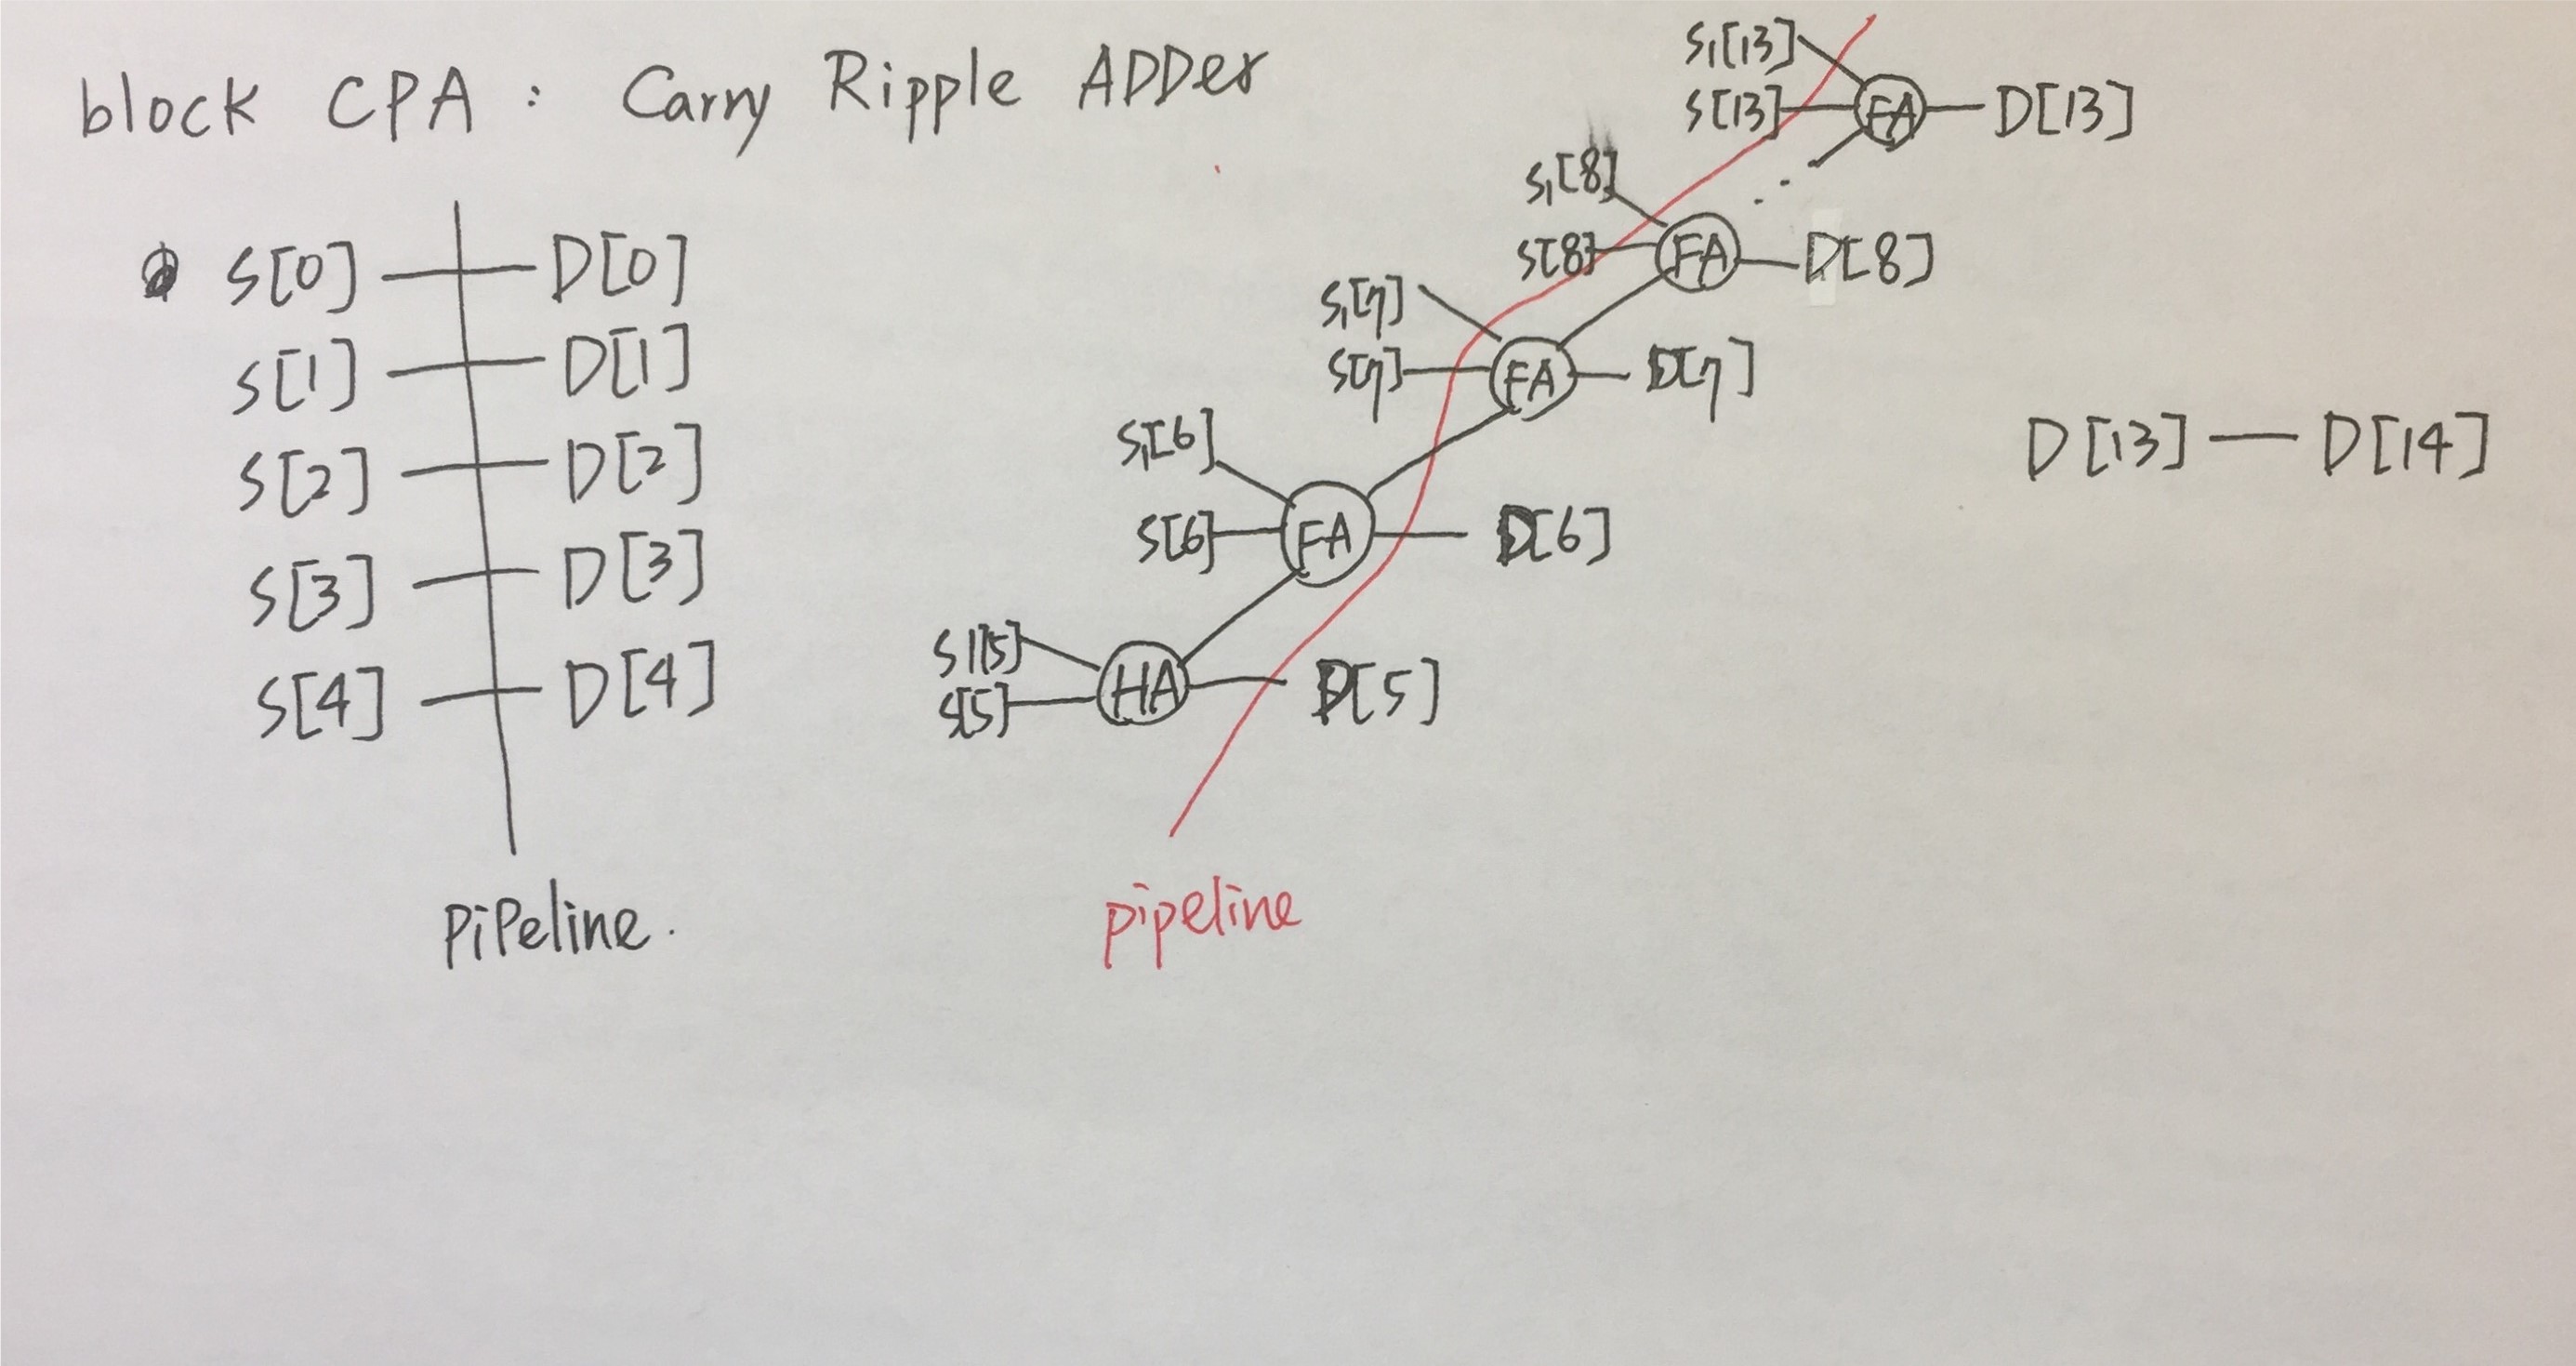 block CPA : Carry Ripple ADDer
S[0] D[0]
S[1] D[1]
S[2] D[2]
S[3] D[3]
S[4] D[4]
pipeline.
S1[13]
S[13] FA D[13]
S1[8]
S[8] FA D[8]
S1[7]
S[7] FA D[7]
S1[6]
S[6] FA D[6]
S1[5]
S[5] HA D[5]
pipeline
D[13] — D[14]